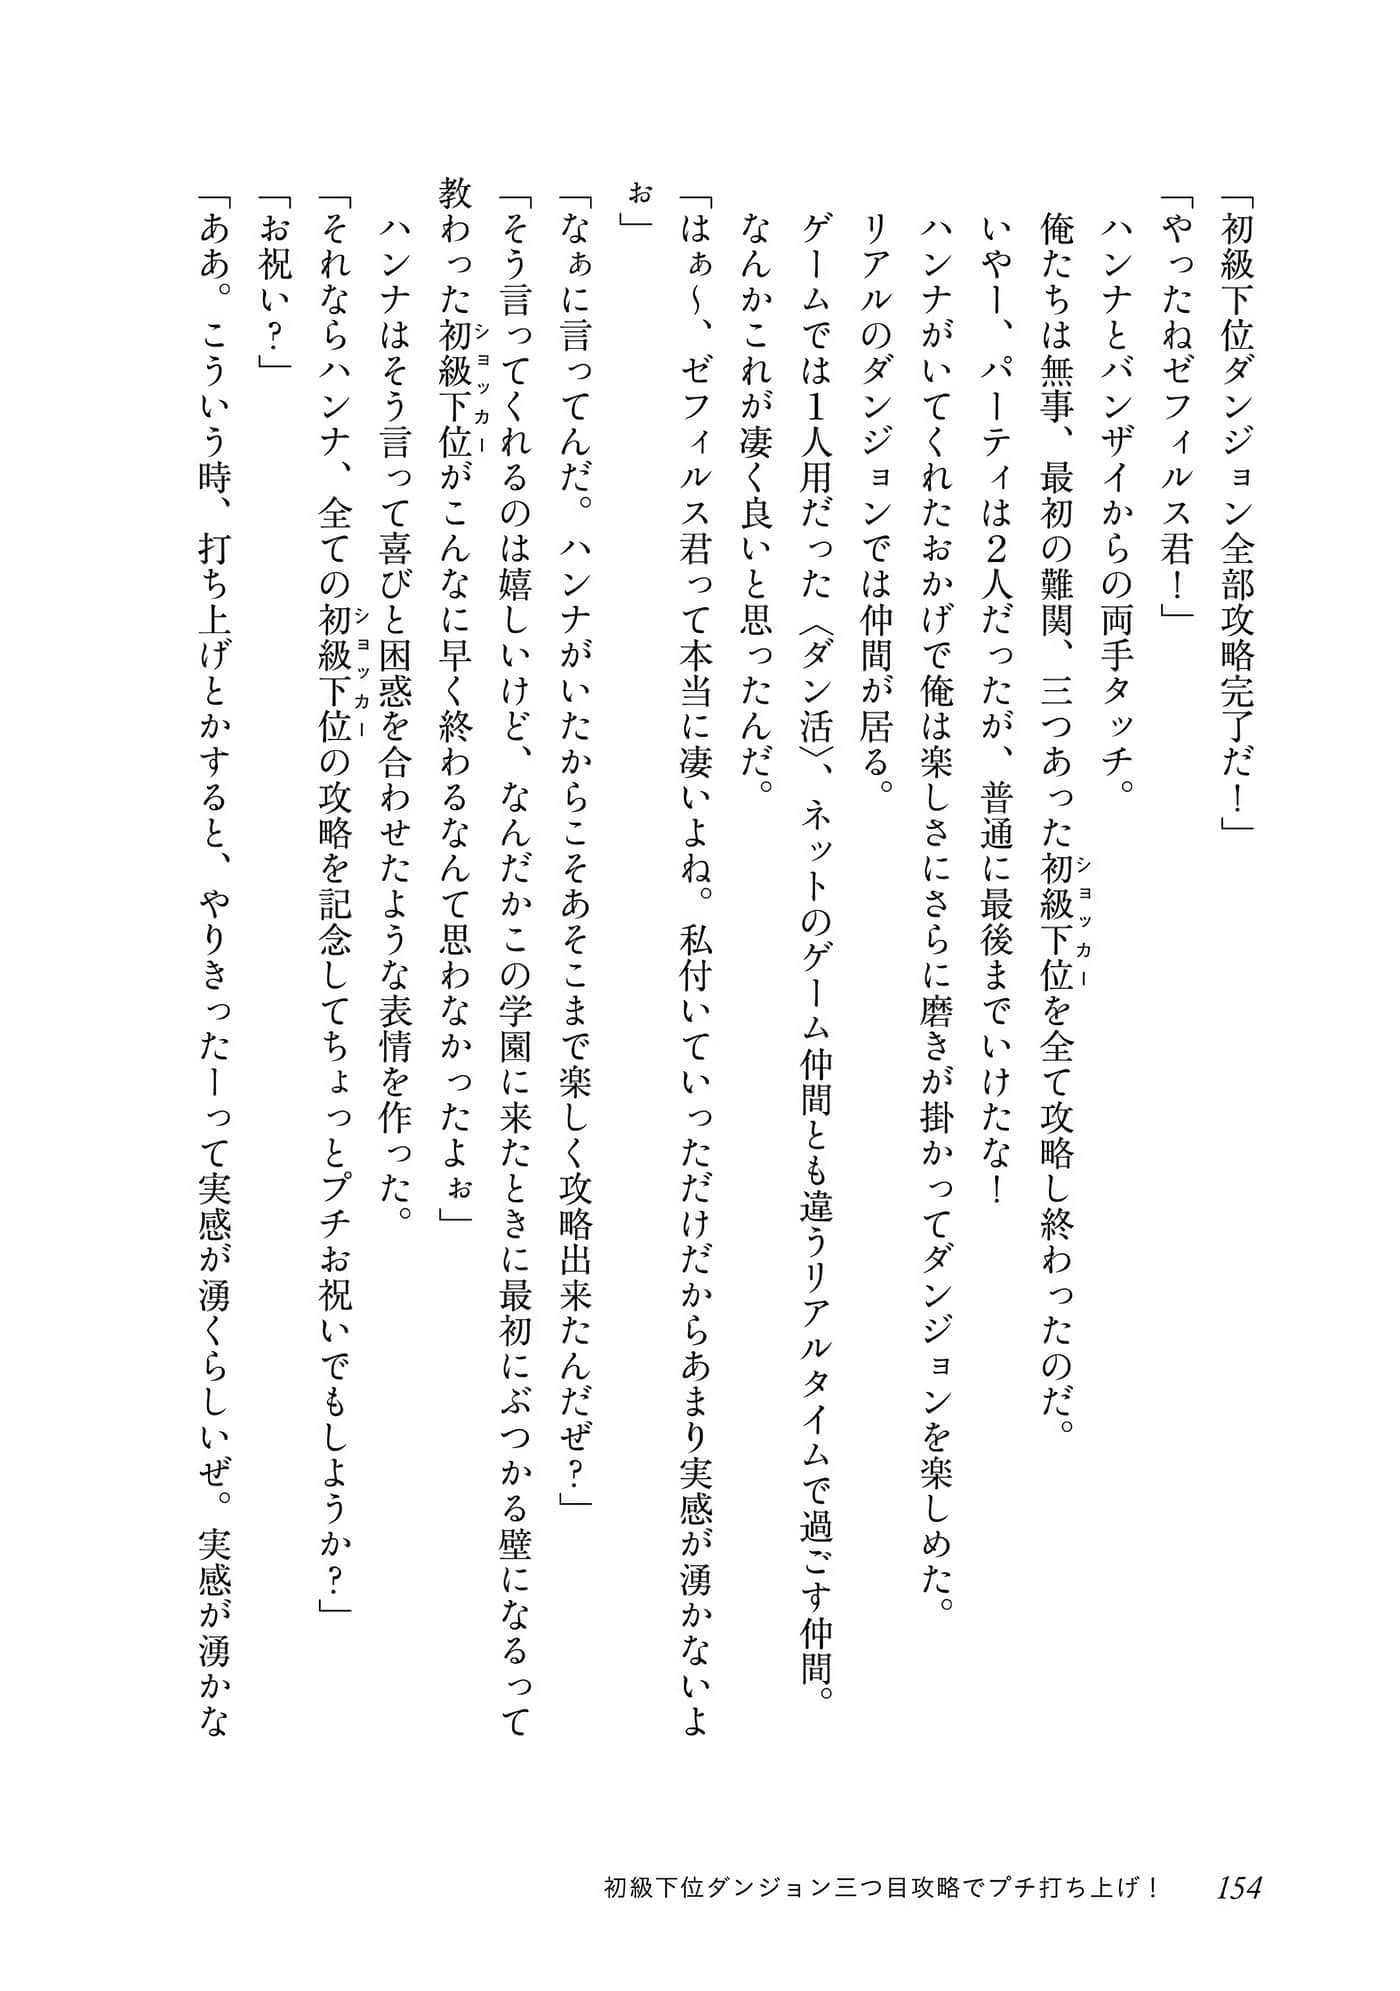 「初級下位ダンジョン全部攻略完了だ！」
「やったねゼフィルス君！」
　ハンナとバンザイからの両手タッチ。
　俺たちは無事、最初の難関、三つあった初級下位ショッカーを全て攻略し終わったのだ。
　いやー、パーティは２人だったが、普通に最後までいけたな！
　ハンナがいてくれたおかげで俺は楽しさにさらに磨きが掛かってダンジョンを楽しめた。
　リアルのダンジョンでは仲間が居る。
　ゲームでは１人用だった〈ダン活〉、ネットのゲーム仲間とも違うリアルタイムで過ごす仲間。
　なんかこれが凄く良いと思ったんだ。
「はぁ～、ゼフィルス君って本当に凄いよね。私付いていっただけだからあまり実感が湧かないよ
ぉ」
「なぁに言ってんだ。ハンナがいたからこそあそこまで楽しく攻略出来たんだぜ？」
「そう言ってくれるのは嬉しいけど、なんだかこの学園に来たときに最初にぶつかる壁になるって
教わった初級下位ショッカーがこんなに早く終わるなんて思わなかったよぉ」
　ハンナはそう言って喜びと困惑を合わせたような表情を作った。
「それならハンナ、全ての初級下位ショッカーの攻略を記念してちょっとプチお祝いでもしようか？」
「お祝い？」
「ああ。こういう時、打ち上げとかすると、やりきったーって実感が湧くらしいぜ。実感が湧かな
初級下位ダンジョン三つ目攻略でプチ打ち上げ！　154